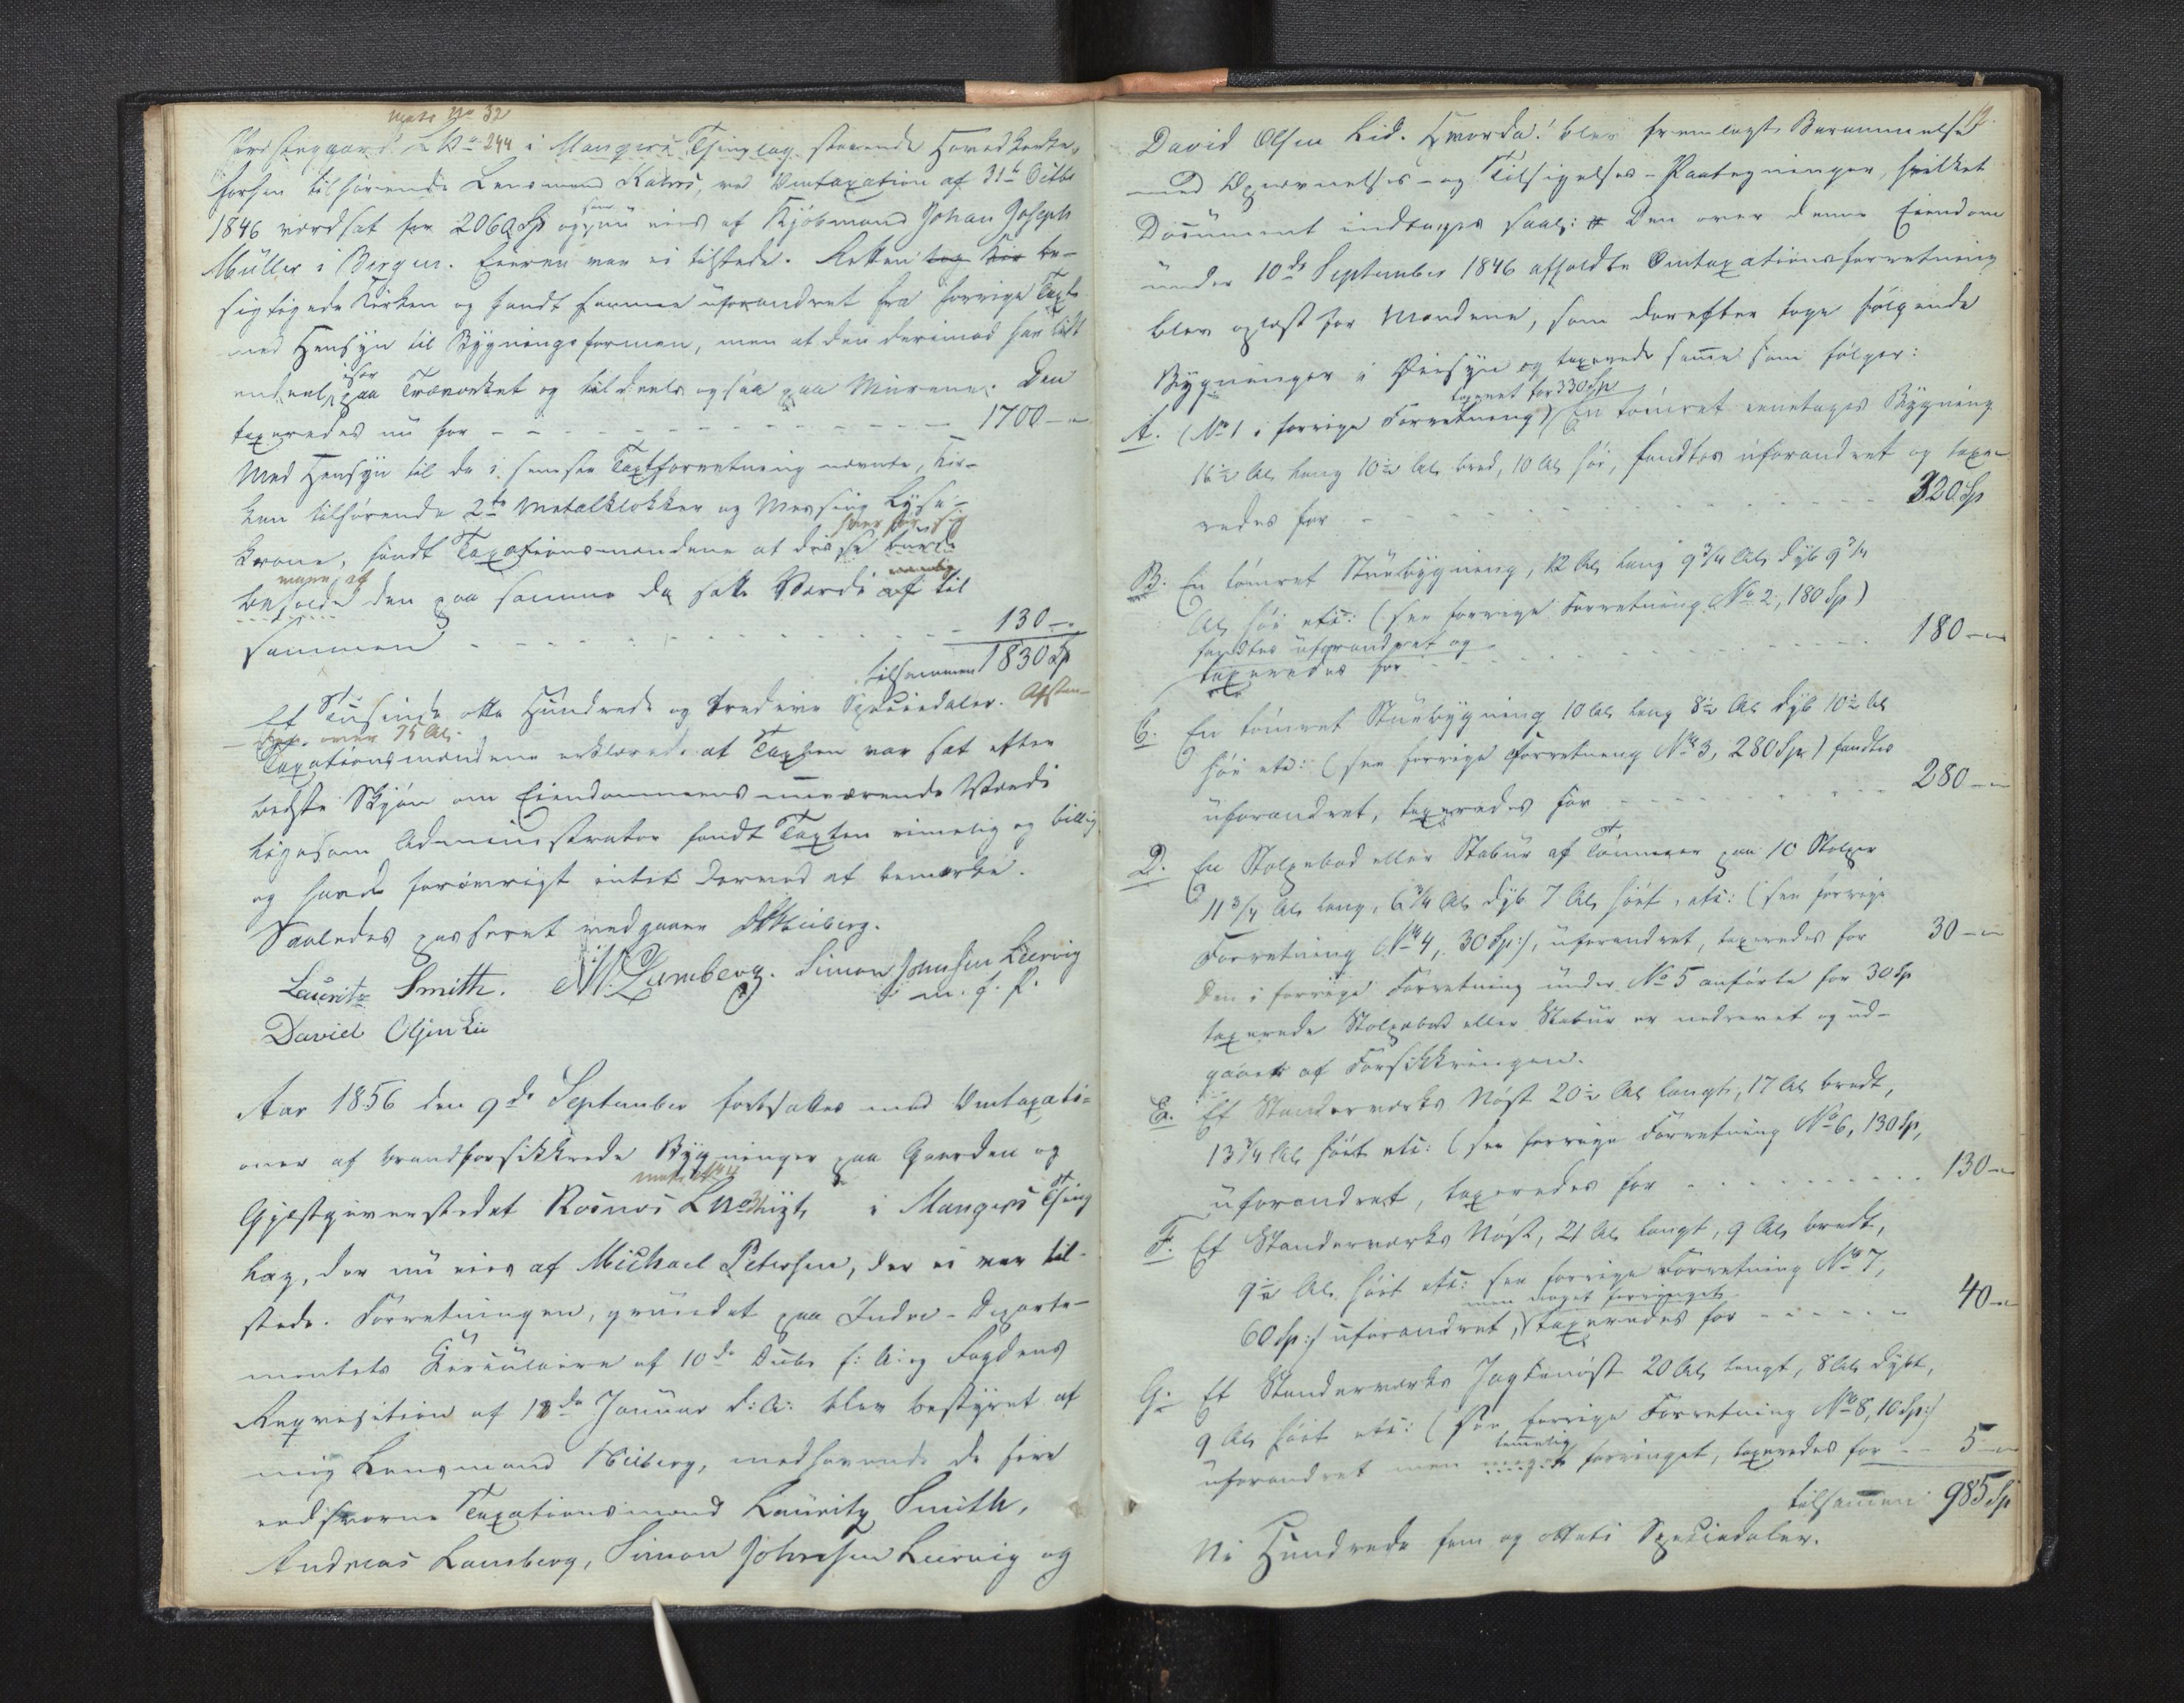 Matr No 32
LNo 244 i Mangers Thinglag staaende Hovedkirke,
forhen tilhørende Lensmand Kahrs, ved Omtaxation af 31te Octbr
1846 værdsat for 2060 Sp og som nu eies af Kjøbmand Johan Joseph
Müller i Bergen. Eieren var ei tilstede. Retten tog Kir be-
sigtigede Kirken og fandt samme uforandret fra forrige Taxt
med Hensyn til Bygningsformen, men at den derimod har lidt
endeel, især paa Træværket og tildeels ogsaa paa Murene. Den
taxeredes nu for - - - 1700 -
Med Hensyn til de i seneste Taxtforretning nævnte, Kir-
ken tilhørende 2de Metalklokker og Messing Lyse-
krone, fandt Taxationsmændene at disse burde
hver for sig
beholde den paa samme da satte Værdi af til
nemlig
sammen - - - 130 -
tilsammen 1830 Sp
Et Tusinde otte Hundrede og tredive Speciedaler. Afstan-
over 75 Al.
Taxationsmændene erklærede at Taxten var sat efter
bedste Skjøn om Eiendommens nuværende Værdi
ligesom Administrator fandt Taxten rimelig og billig
og havde forøvrigt intet derved at bemærke.
Saaledes passeret vedgaaer Heiberg.
Lauritz Smith. Lamberg. Simon Johnsen Leervig
m. f. P.
David Olsen Lie
Aar 1856 den 9de September fortsattes med Omtaxati-
oner af brandforsikkrede Bygninger paa Gaarden og
matr
Gjæstgiverstedet Rosnøs LNo i Mangers Thing
lag, der nu eies af Michael Petersen, der ei var til-
stede. Forretningen, grundet paa Indre-Departe-
mentets Circulaire af 10de Decbr f: A: og Fogdens
Reqvisition af 18de Januar d: A: blev bestyret af
mig Lensmand Heiberg, medhavende de fire
edsvorne Taxationsmænd Lauritz Smith,
Andreas Lamberg, Simon Johnsen Leervig og
12.
David Olsen Lid. Hvorda! blev fremlagt Berammelse
med Opnævnelses- og Tilsigelses-Paategninger, hvilket
Document indtages saal: Den over denne Eiendom
under 10de September 1846 afholdte Omtaxationsforretning
blev oplæst for Mændene, som derefter toge følgende
Bygninger i Øiesyn og taxerede samme som følger:
taxeret for 330 Sp
A. (No 1 i forrige Forretning) En tømret eenetages Bygning
16½ Al. lang 10½ Al. bred, 10 Al. høi, fandtes uforandret og taxe-
redes for - - - 320 Sp
B. En tømret Stuebygning, 12 Al. lang 9 3/4 Al. dyb 9 3/4
Al. høi etc: (see forrige Forretning No 2, 180 Sp)
fandtes uforandret og
taxeredes for - - - 180 -
C. En tømret Stuebygning 10 Al. lang 8½ Al. dyb 10½ Al.
høi etc: (see forrige Forretning No 3, 280 Sp) fandtes
uforandret, taxeredes for - - - 280 -
D. En Stolpebod eller Stabur af Tømmer paa 10 Stolper
11 3/4 Al. lang, 6 3/4 Al. dyb 7 Al. høit, etc: (see forrige
Forretning No 4, 30 Sp:), uforandret, taxeredes for 30 -
Den i forrige Forretning under No 5 anførte for 30 Sp
taxerede Stolpebod eller Stabur er nedrevet og ud-
gaaet af Forsikkringen.
E. Et Stænderværks Nøst 20½ Al. langt, 17 Al. bredt,
13 3/4 Al. høit etc: (see forrige Forretning No 6, 130 Sp,
uforandret, taxeredes for - - - 130 -
F. Et Stænderværks Nøst, 21 Al. langt, 9 Al. bredt,
9½ Al. høit etc: see forrige Forretning No 7,
men meget forringet
60 Sp:) uforandret, taxeredes for - - - 40 -
G. Et Stænderværks Jagtenøst 20 Al. langt, 8 Al. dybt,
9 Al. høit etc: (See forrige Forretning No 8, 10 Sp:)
temmelig
uforandret men meget forringet, taxeredes for - - 5 -
tilsammen 985 Sp
Ni Hundrede fem og otteti Speciedaler.